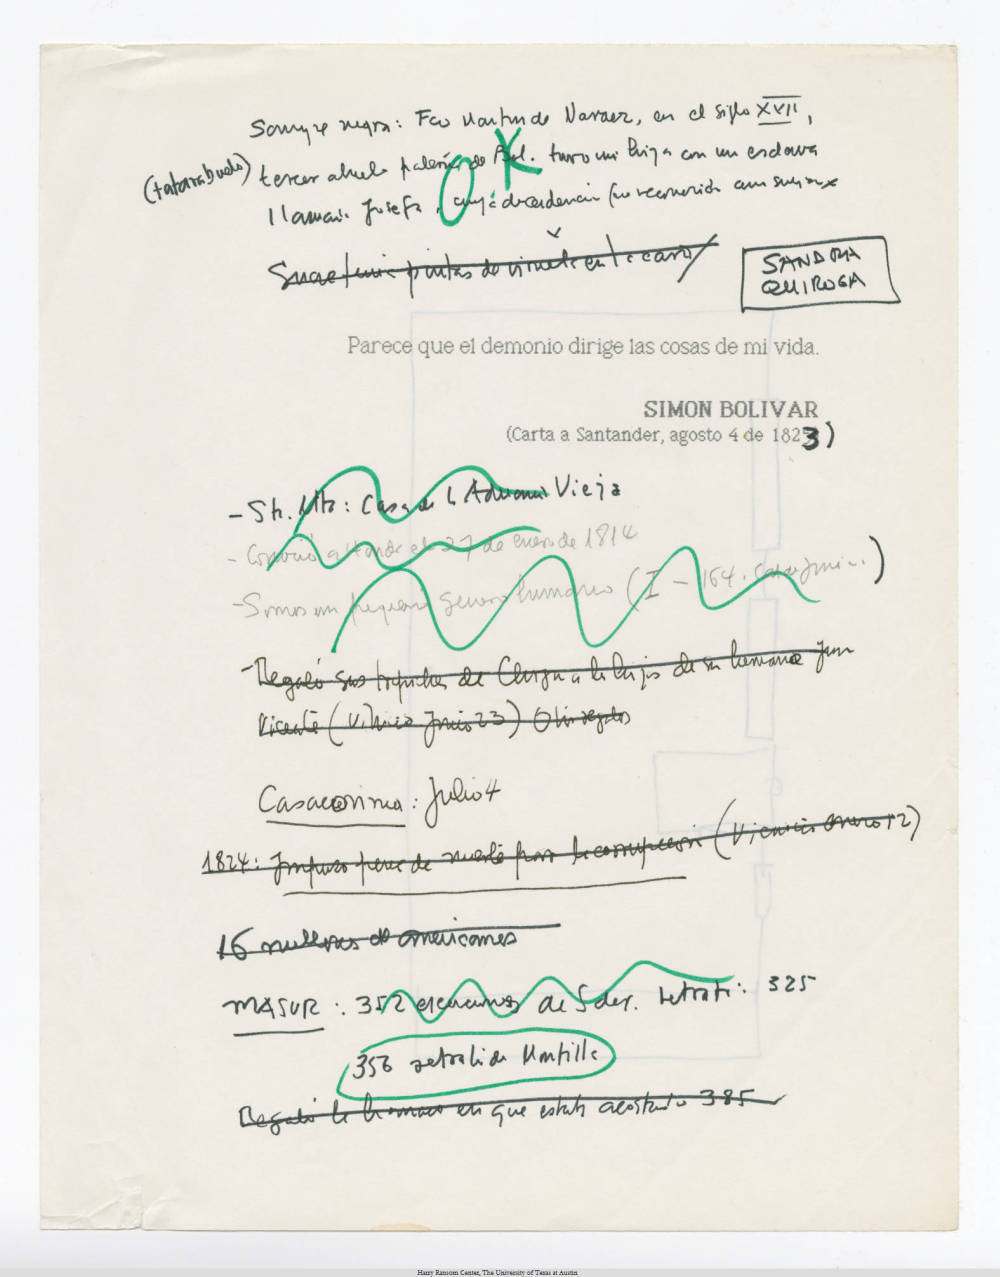 Sangre negra: Fco Martín de Narvaez, en el siglo XVII,
(tatarabuelo) tercer abuelo paterno de Bol. tuvo una hija con una esclava
OK
llamada Josefa, cuya descendencia fue reconocida
Sucre tenía pintas de viruela en la cara
SANDRA
QUIROGA
Parece que el demonio dirige las cosas de mi vida.
SIMON BOLIVAR
(Carta a Santander, agosto 4 de 1823)
- Sta. Mta: Casa de la Aduana Vieja
- Conoció a el 27 de enero de 1814
- Somos un pequeño género humano (I - 164. Carta Jamaica)
- Regaló sus de a la hija de su hermano Juan
Vicente ( Junio 23) Otros regalos
Casacoima: Julio 4
1824: Impuso pena de muerte para la corrupción (Vicencio Enero 12)
16 millones de americanos
MASUR: 352 de Sder. retrato: 325
356 retrato de Montilla
Regaló la hamaca en que estaba acostado 385
Harry Ransom Center, The University of Texas at Austin